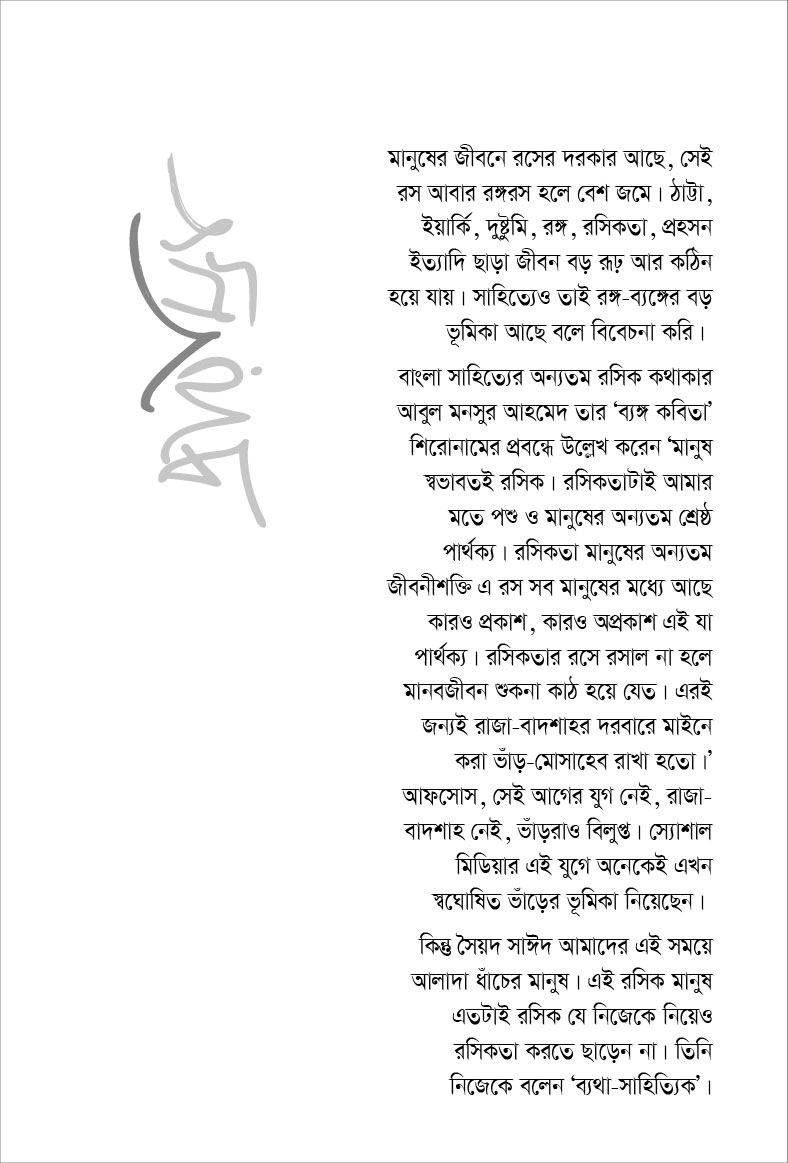 মানুষের জীবনে রসের দরকার আছে, সেই
রস আবার রঙ্গরস হলে বেশ জমে। ঠাট্টা,
ইয়ার্কি, দুষ্টুমি, রঙ্গ, রসিকতা, প্রহসন
ইত্যাদি ছাড়া জীবন বড় রূঢ় আর কঠিন
হয়ে যায়। সাহিত্যেও তাই রঙ্গ-ব্যঙ্গের বড়
ভূমিকা আছে বলে বিবেচনা করি।
বাংলা সাহিত্যের অন্যতম রসিক কথাকার
আবুল মনসুর আহমেদ তার ‘ব্যঙ্গ কবিতা’
শিরোনামের প্রবন্ধে উল্লেখ করেন ‘মানুষ
স্বভাবতই রসিক। রসিকতাটাই আমার
মতে পশু ও মানুষের অন্যতম শ্রেষ্ঠ
পার্থক্য। রসিকতা মানুষের অন্যতম
জীবনীশক্তি এ রস সব মানুষের মধ্যে আছে
কারও প্রকাশ, কারও অপ্রকাশ এই যা
পার্থক্য। রসিকতার রসে রসাল না হলে
মানবজীবন শুকনা কাঠ হয়ে যেত। এরই
জন্যই রাজা-বাদশাহর দরবারে মাইনে
করা ভাঁড়-মোসাহেব রাখা হতো।’
আফসোস, সেই আগের যুগ নেই, রাজা-
বাদশাহ নেই, ভাঁড়রাও বিলুপ্ত। স্যোশাল
মিডিয়ার এই যুগে অনেকেই এখন
স্বঘোষিত ভাঁড়ের ভূমিকা নিয়েছেন।
কিন্তু সৈয়দ সাঈদ আমাদের এই সময়ে
আলাদা ধাঁচের মানুষ। এই রসিক মানুষ
এতটাই রসিক যে নিজেকে নিয়েও
রসিকতা করতে ছাড়েন না। তিনি
নিজেকে বলেন ‘ব্যথা-সাহিত্যিক’।